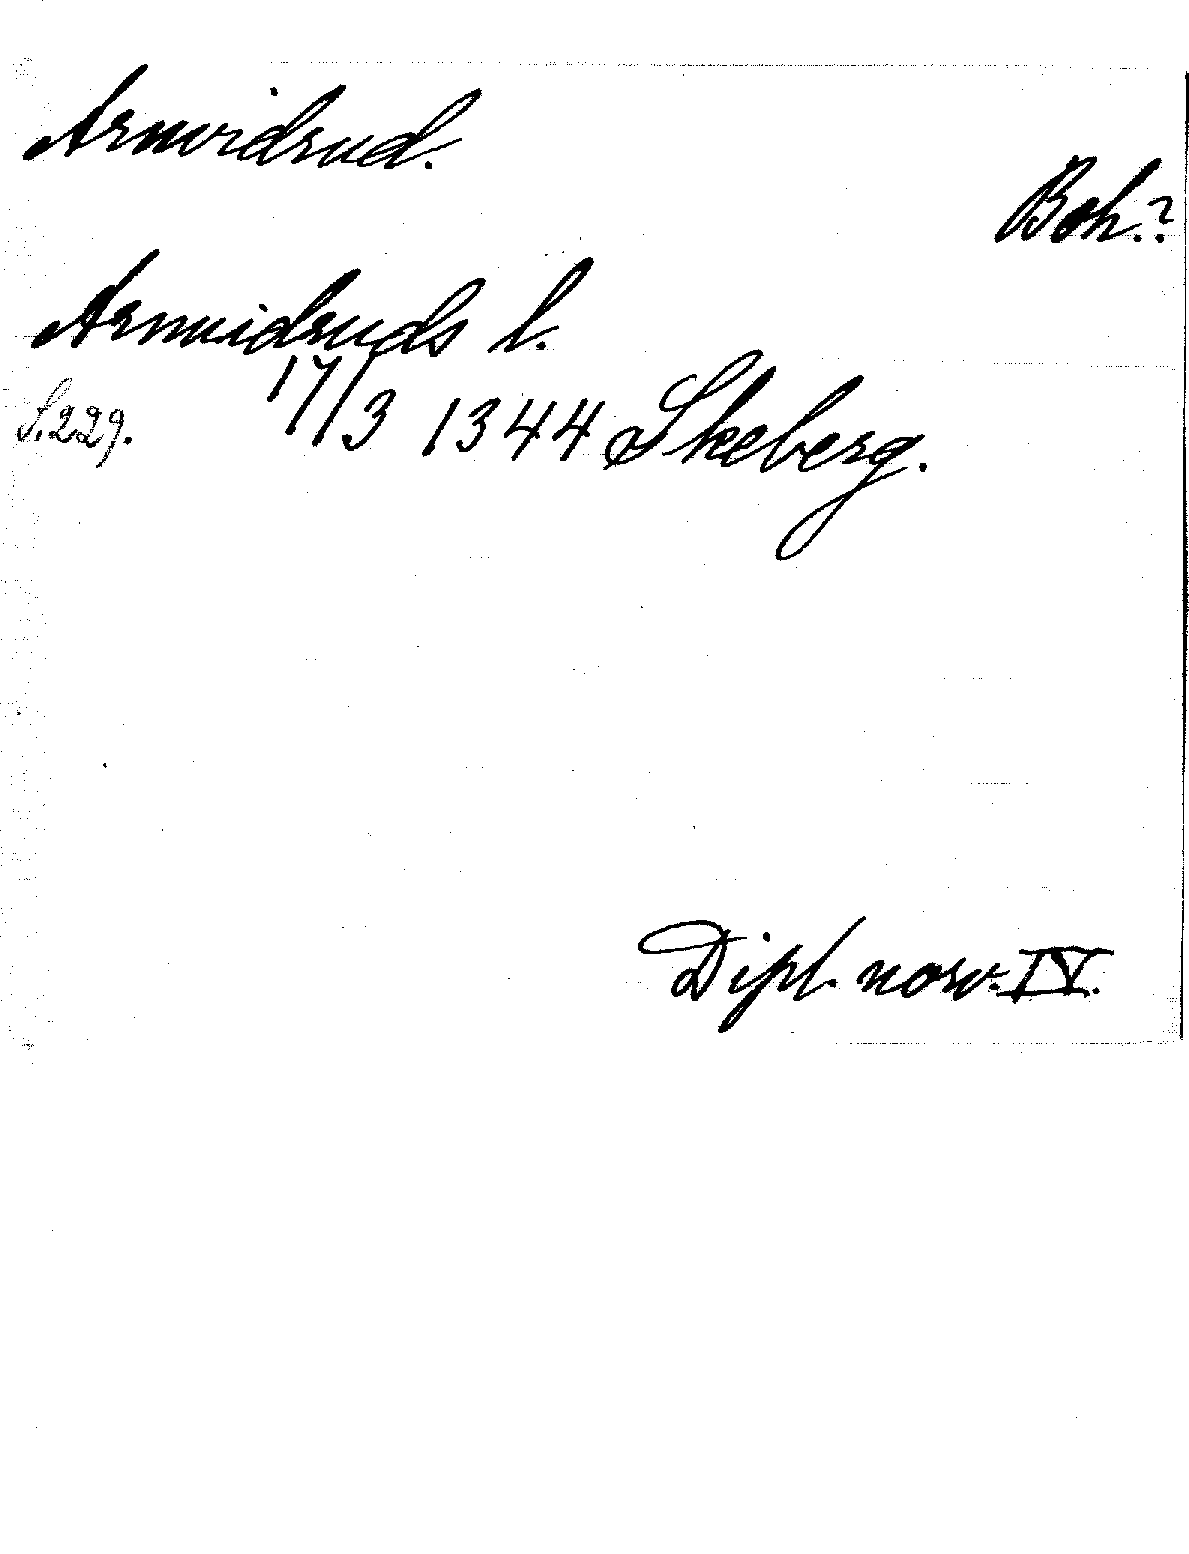 Arnvidrud.
Boh.?
Arnuidruds l.
S. 229. 17/3 1344 Skeberg.
Dipl. norv. IV.